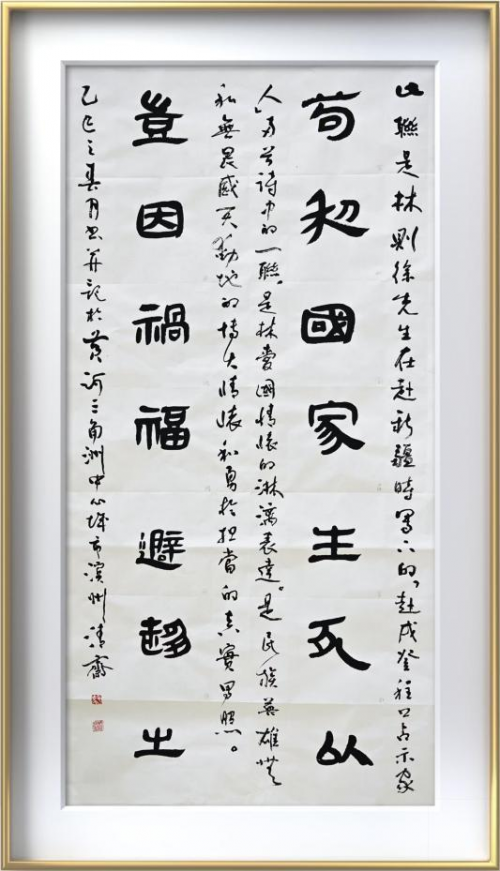 此聯是林則徐先生在赴新疆時写下的“赴戍登程口占示家
苟利國家生死以
人”两首詩中的一聯,是林愛國情懷的淋漓表達。是民族英雄無
私無畏感天動地的博大情懷和勇於担當的真實写照。
豈因禍福避趍之
乙巳之春月書并記於黃河三角洲中心城市濱州清齋